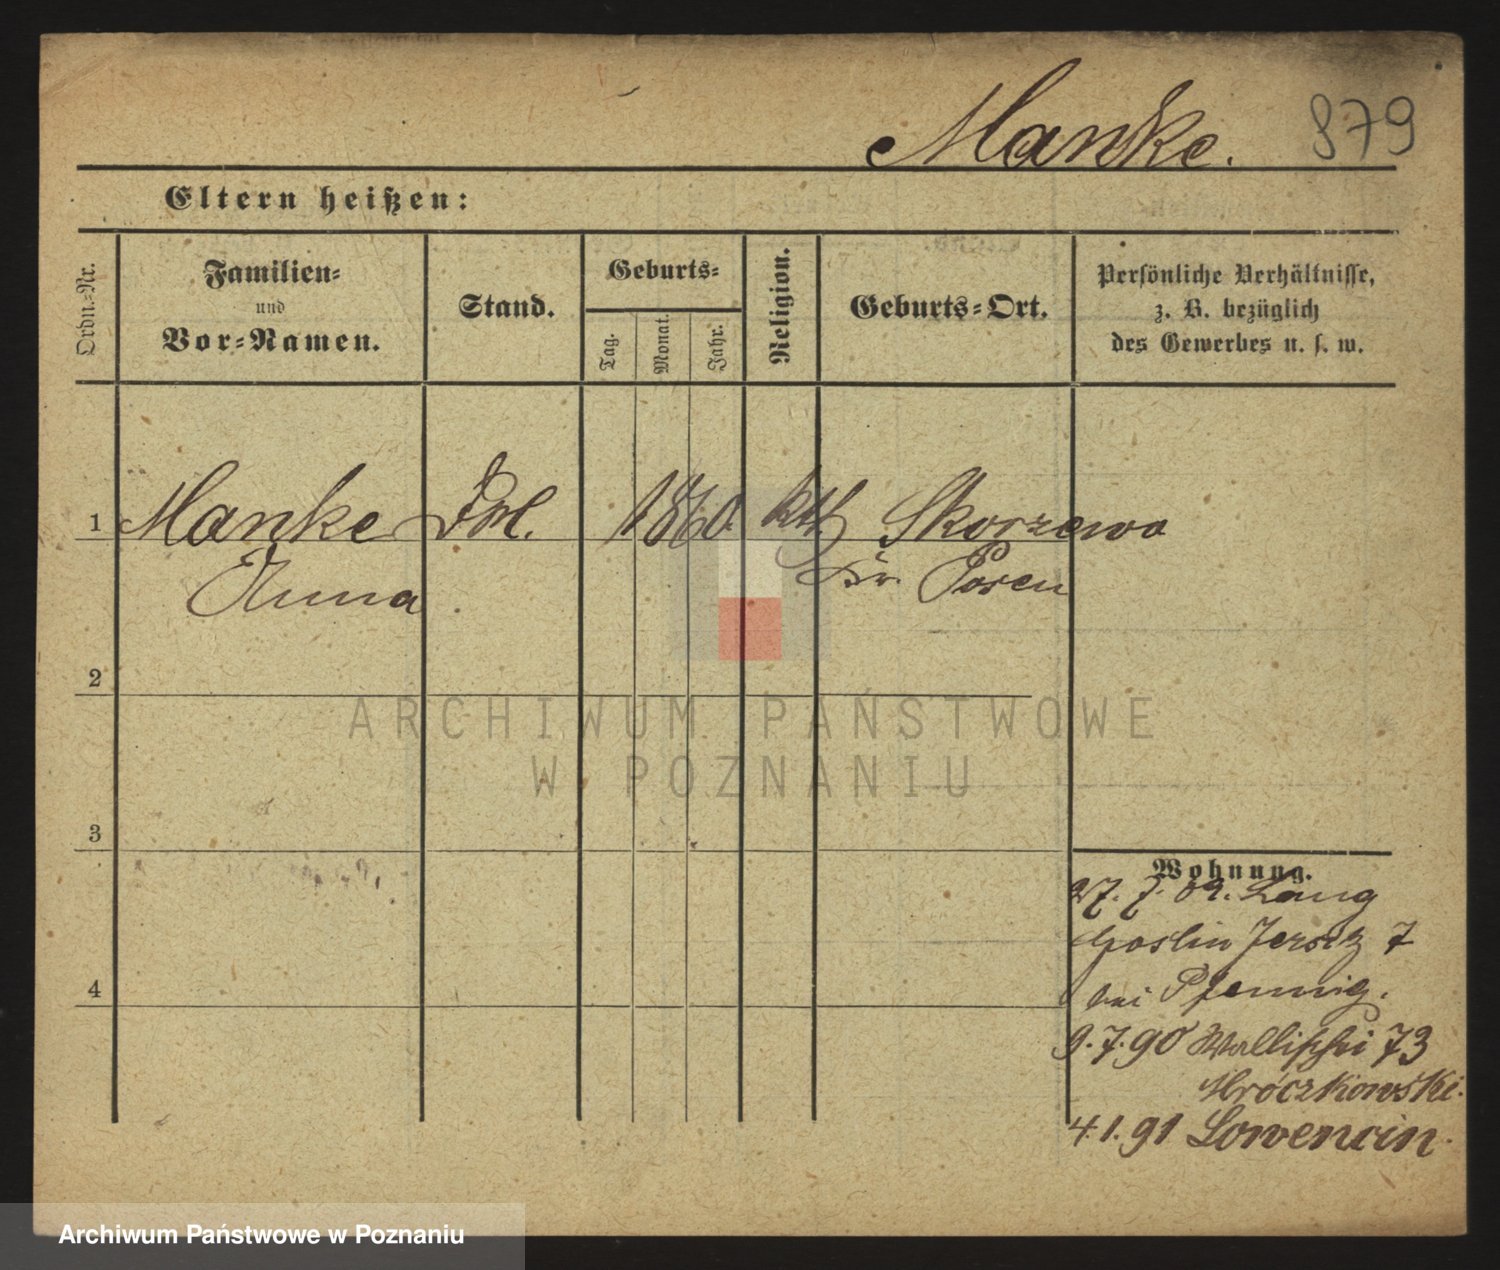 Manke. 879
Eltern heißen:
Ordn.-Nr.
Familien-
und
Vor-Namen.
Stand.
Geburts-
Tag.
Monat.
Jahr.
Religion.
Geburts-Ort.
Persönliche Verhältnisse,
z. B. bezüglich
des Gewerbes u. s. w.
1 Manke 1860. kth. Skorzewo
Anna Kr. Posen
2
ARCHIWUM PAŃSTWOWE
W POZNANIU
3
Wohnung.
27. 7. 89. Lang
Goslin Jersitz 7
4
bei Pfennig.
9.7.90 Wallischei 73
Mróczkowski.
4.1.91 Lowencin.
Archiwum Państwowe w Poznaniu